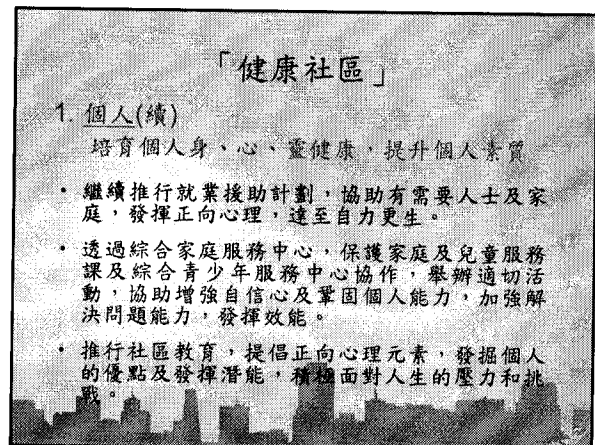 「健康社區」
1. 個人(續)
培育個人身、心、靈健康，提升個人素質
• 繼續推行就業援助計劃，協助有需要人士及家
庭，發揮正向心理，達至自力更生。
• 透過綜合家庭服務中心，保護家庭及兒童服務
課及綜合青少年服務中心協作，舉辦適切活
動，協助增強自信心及鞏固個人能力，加強解
決問題能力，發揮效能。
• 推行社區教育，提倡正向心理元素，發掘個人
的優點及發揮潛能，積極面對人生的壓力和挑
戰。